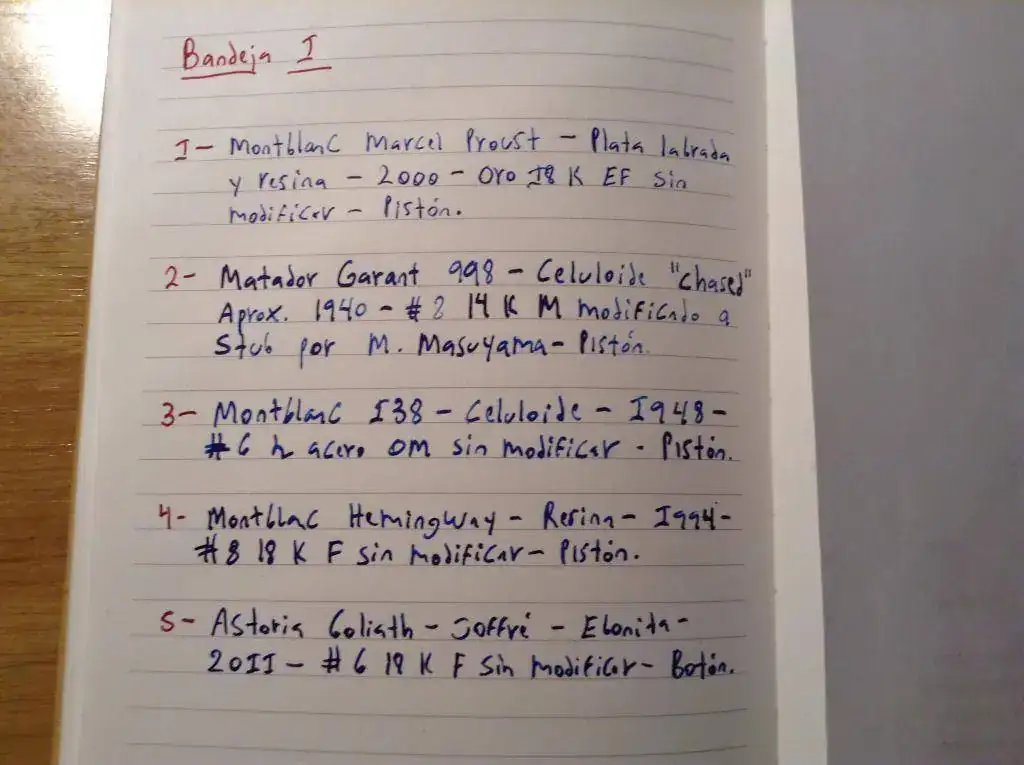 Bandeja I
1- Montblanc Marcel Proust - Plata labrada
y resina - 2000 - Oro 18 K EF sin
modificar - Pistón.
2- Matador Garant 998 - Celuloide "Chased"
Aprox. 1940 - # 8 14 K M modificado a
Stub por M. Masuyama - Pistón.
3- Montblanc 138 - Celuloide - 1948 -
#6 acero OM sin modificar - Pistón.
4- Montblac Hemingway - Resina - 1994 -
#8 18 K F sin modificar - Pistón.
5- Astoria Goliath - Joffré - Ebonita -
2011 - # 6 18 K F sin modificar - Botón.